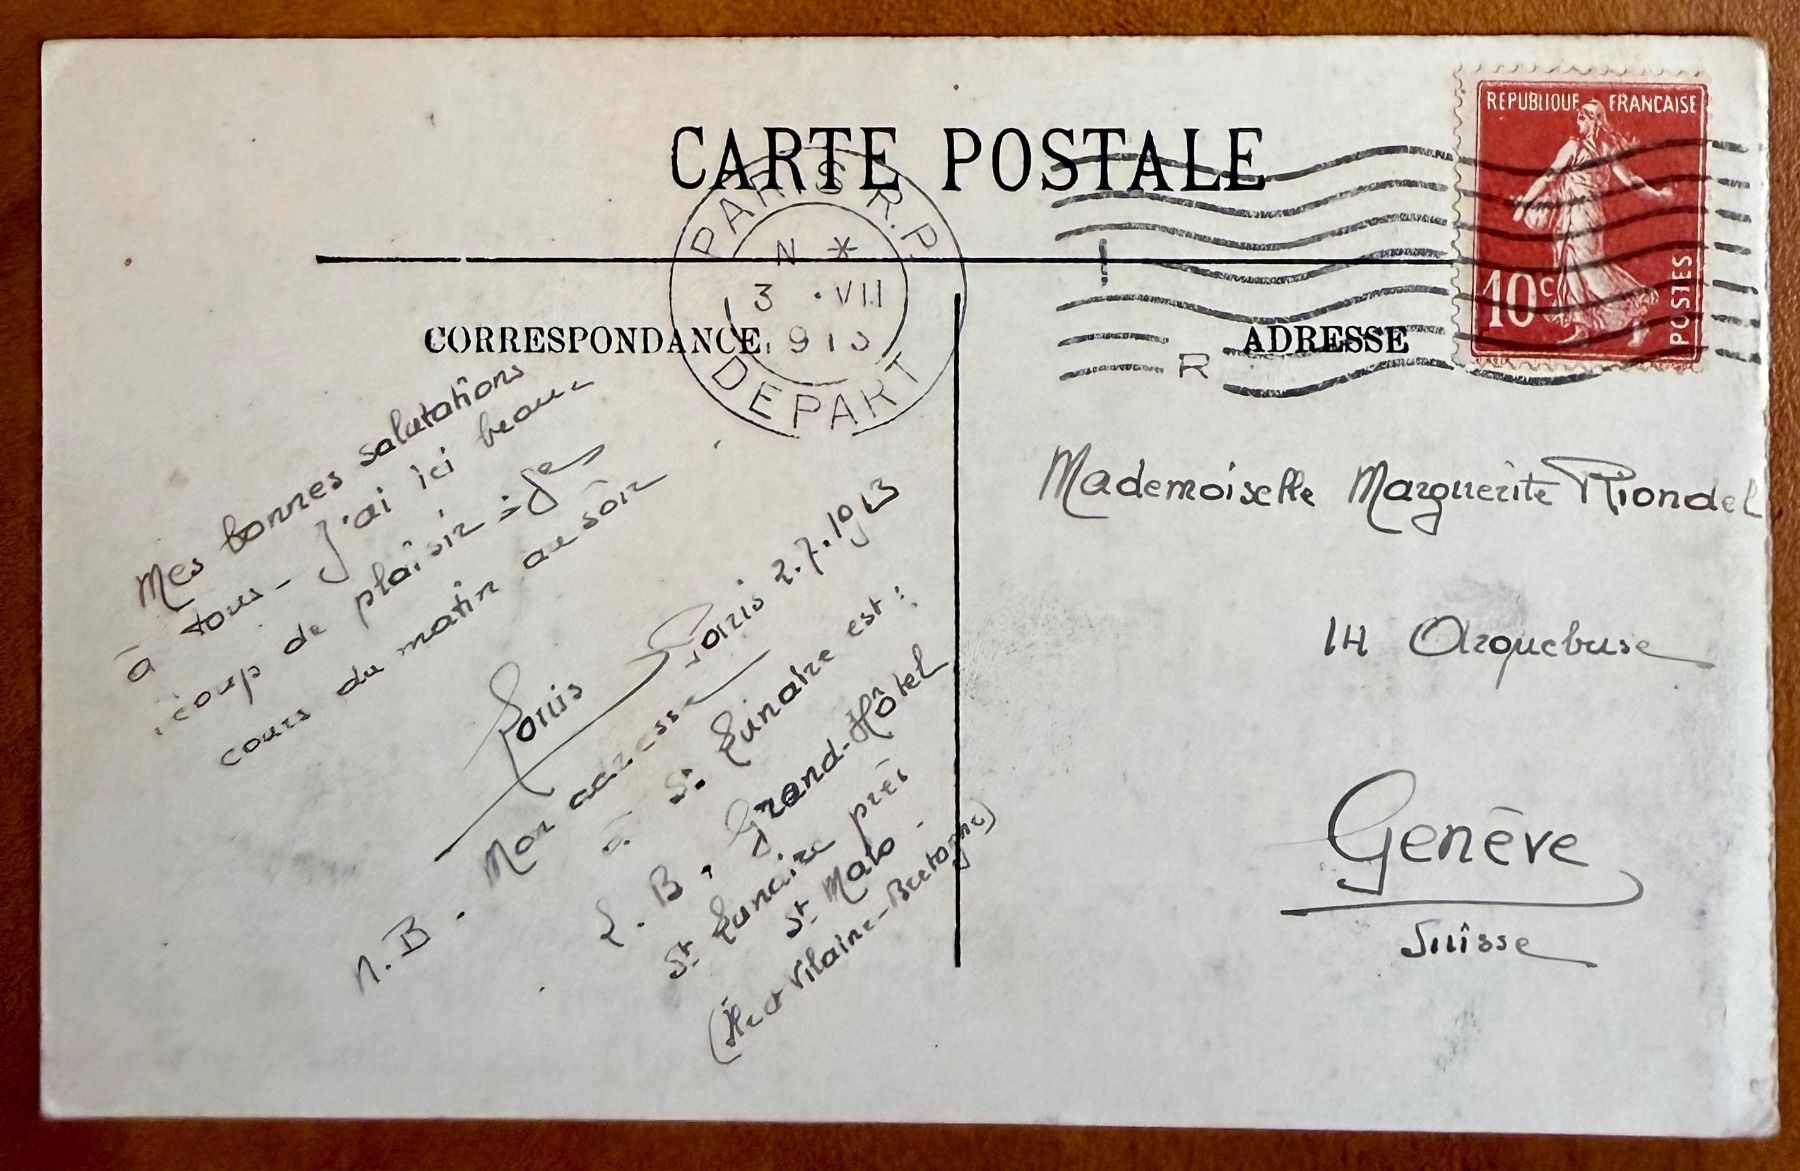 CARTE POSTALE
RÉPUBLIQUE FRANÇAISE
10c
POSTES
PARIS R.P.
N *
3 .VII
DEPART
R
CORRESPONDANCE
ADRESSE
Mes bonnes salutations
à tous - J'ai ici beau-
coup de plaisir
cours du matin au soir
Paris 2.7.1913
Louis
N.B. Mon adresse
à St Lunaire est :
L. B. Grand-Hôtel
St Lunaire près
St Malo.
(Ile et Vilaine-Bretagne)
Mademoiselle Marguerite Riondel
14 Arquebuse
Genève
Suisse